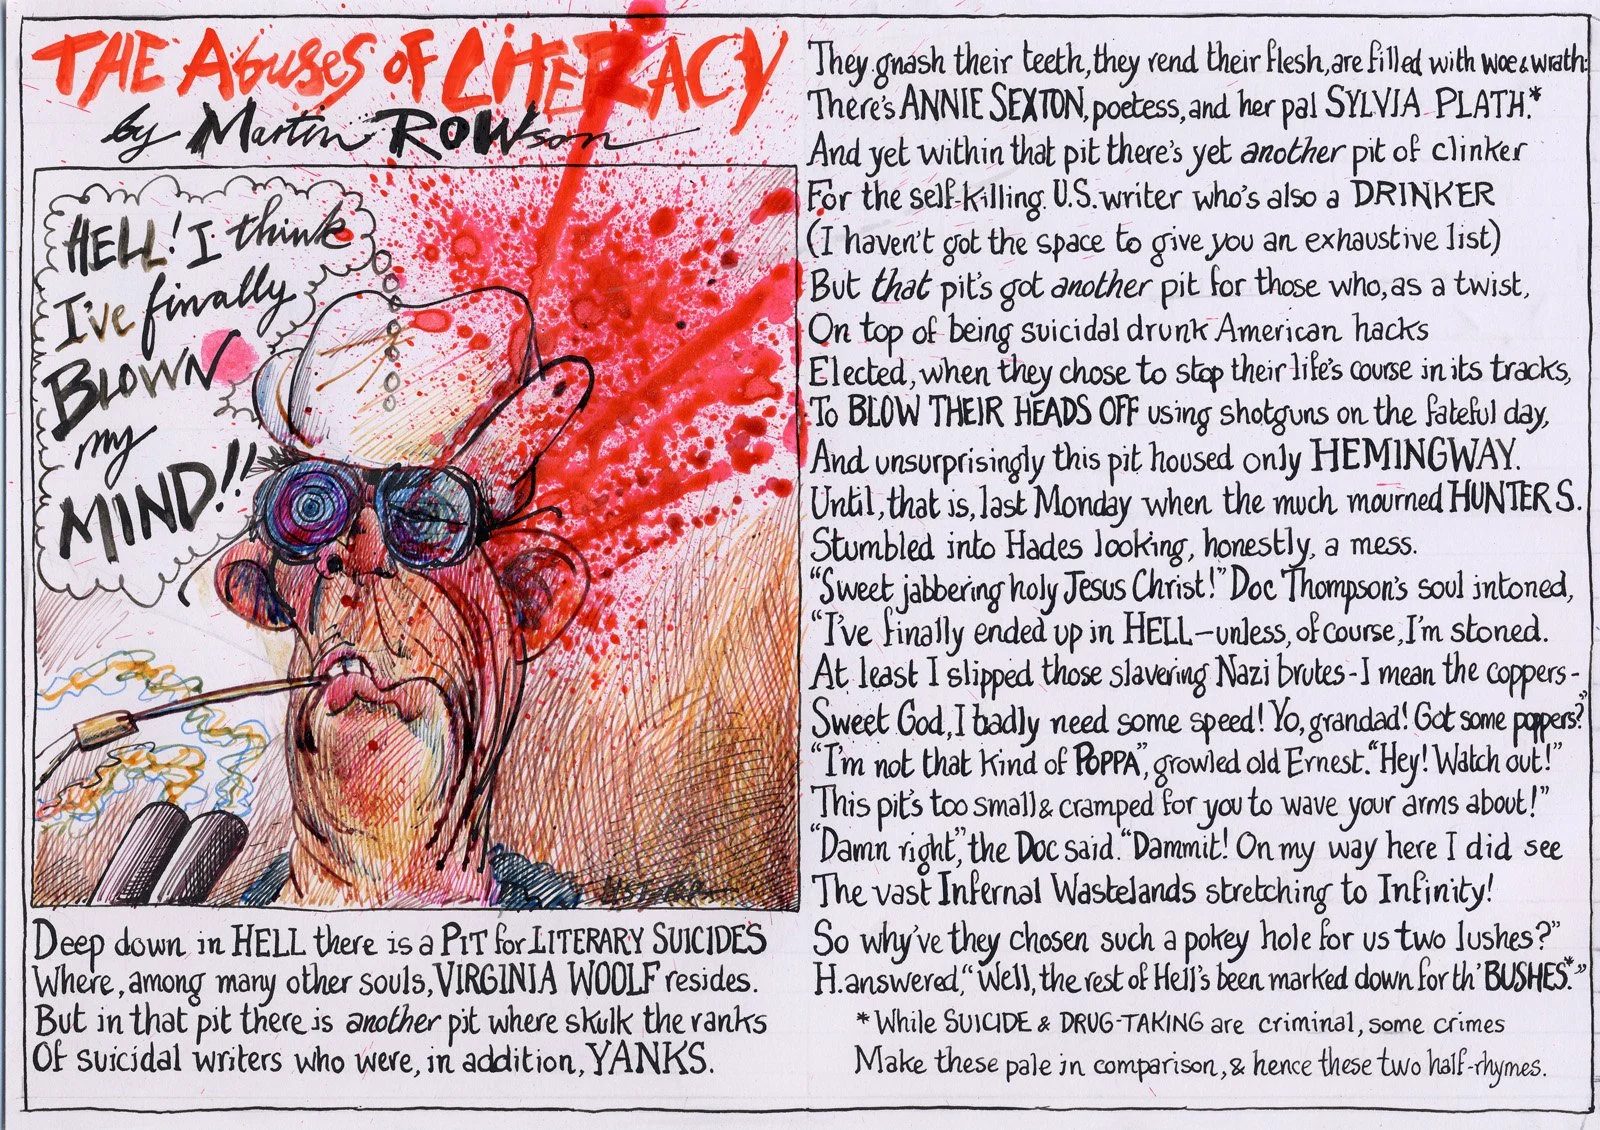 THE ABUSES OF LITERACY
by Martin ROWson
HELL! I think
I've finally
BLOWN
my
MIND!!
Deep down in HELL there is a PIT for LITERARY SUICIDES
Where, among many other souls, VIRGINIA WOOLF resides.
But in that pit there is another pit where skulk the ranks
Of suicidal writers who were, in addition, YANKS.
They gnash their teeth, they rend their flesh, are filled with woe & wrath:
There's ANNIE SEXTON, poetess, and her pal SYLVIA PLATH.*
And yet within that pit there's yet another pit of clinker
For the self-killing U.S. writer who's also a DRINKER
(I haven't got the space to give you an exhaustive list)
But that pit's got another pit for those who, as a twist,
On top of being suicidal drunk American hacks
Elected, when they chose to stop their life's course in its tracks,
To BLOW THEIR HEADS OFF using shotguns on the fateful day,
And unsurprisingly this pit housed only HEMINGWAY.
Until, that is, last Monday when the much mourned HUNTER S.
Stumbled into Hades looking, honestly, a mess.
"Sweet jabbering holy Jesus Christ!" Doc Thompson's soul intoned,
"I've finally ended up in HELL – unless, of course, I'm stoned.
At least I slipped those slavering Nazi brutes - I mean the coppers -
Sweet God, I badly need some speed! Yo, grandad! Got some poppers?"
"I'm not that kind of POPPA", growled old Ernest. "Hey! Watch out!"
This pit's too small & cramped for you to wave your arms about!"
"Damn right", the Doc said. "Dammit! On my way here I did see
The vast Infernal Wastelands stretching to Infinity!
So why've they chosen such a pokey hole for us two lushes?"
H. answered, "Well, the rest of Hell's been marked down for th' BUSHES.*"
*While SUICIDE & DRUG-TAKING are criminal, some crimes
Make these pale in comparison, & hence these two half-rhymes.